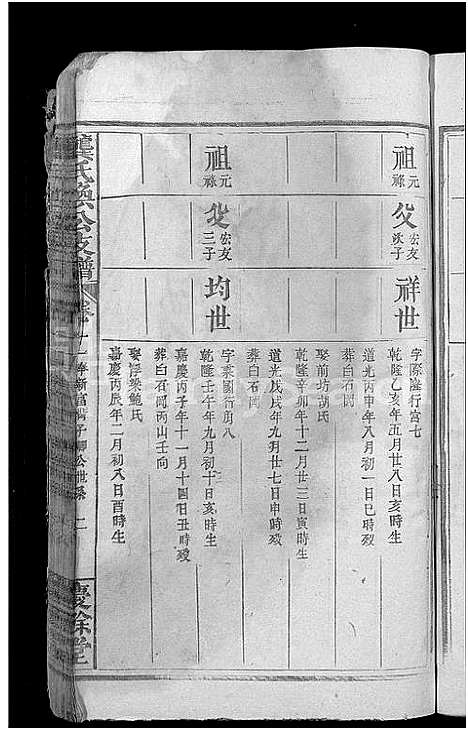 祖 元祿
父 宏友次子
祥世
字際隆行富七
乾隆乙亥年五月廿八日亥時生
道光丙申年八月初一日巳時歿
葬白石岡
娶前坊胡氏
乾隆辛卯年十二月廿三日寅時生
道光戊戌年九月廿七日申時歿
葬白石岡
祖 元祿
父 宏友三子
均世
字秉國行富八
乾隆壬午年九月初十日亥時生
嘉慶丙子年十一月十四日丑時歿
葬白石岡丙山壬向
娶浮梁鮑氏
嘉慶丙辰年二月初八日酉時生
龔氏
公支譜
卷十一
新富
子卿公世系
二
慶餘堂